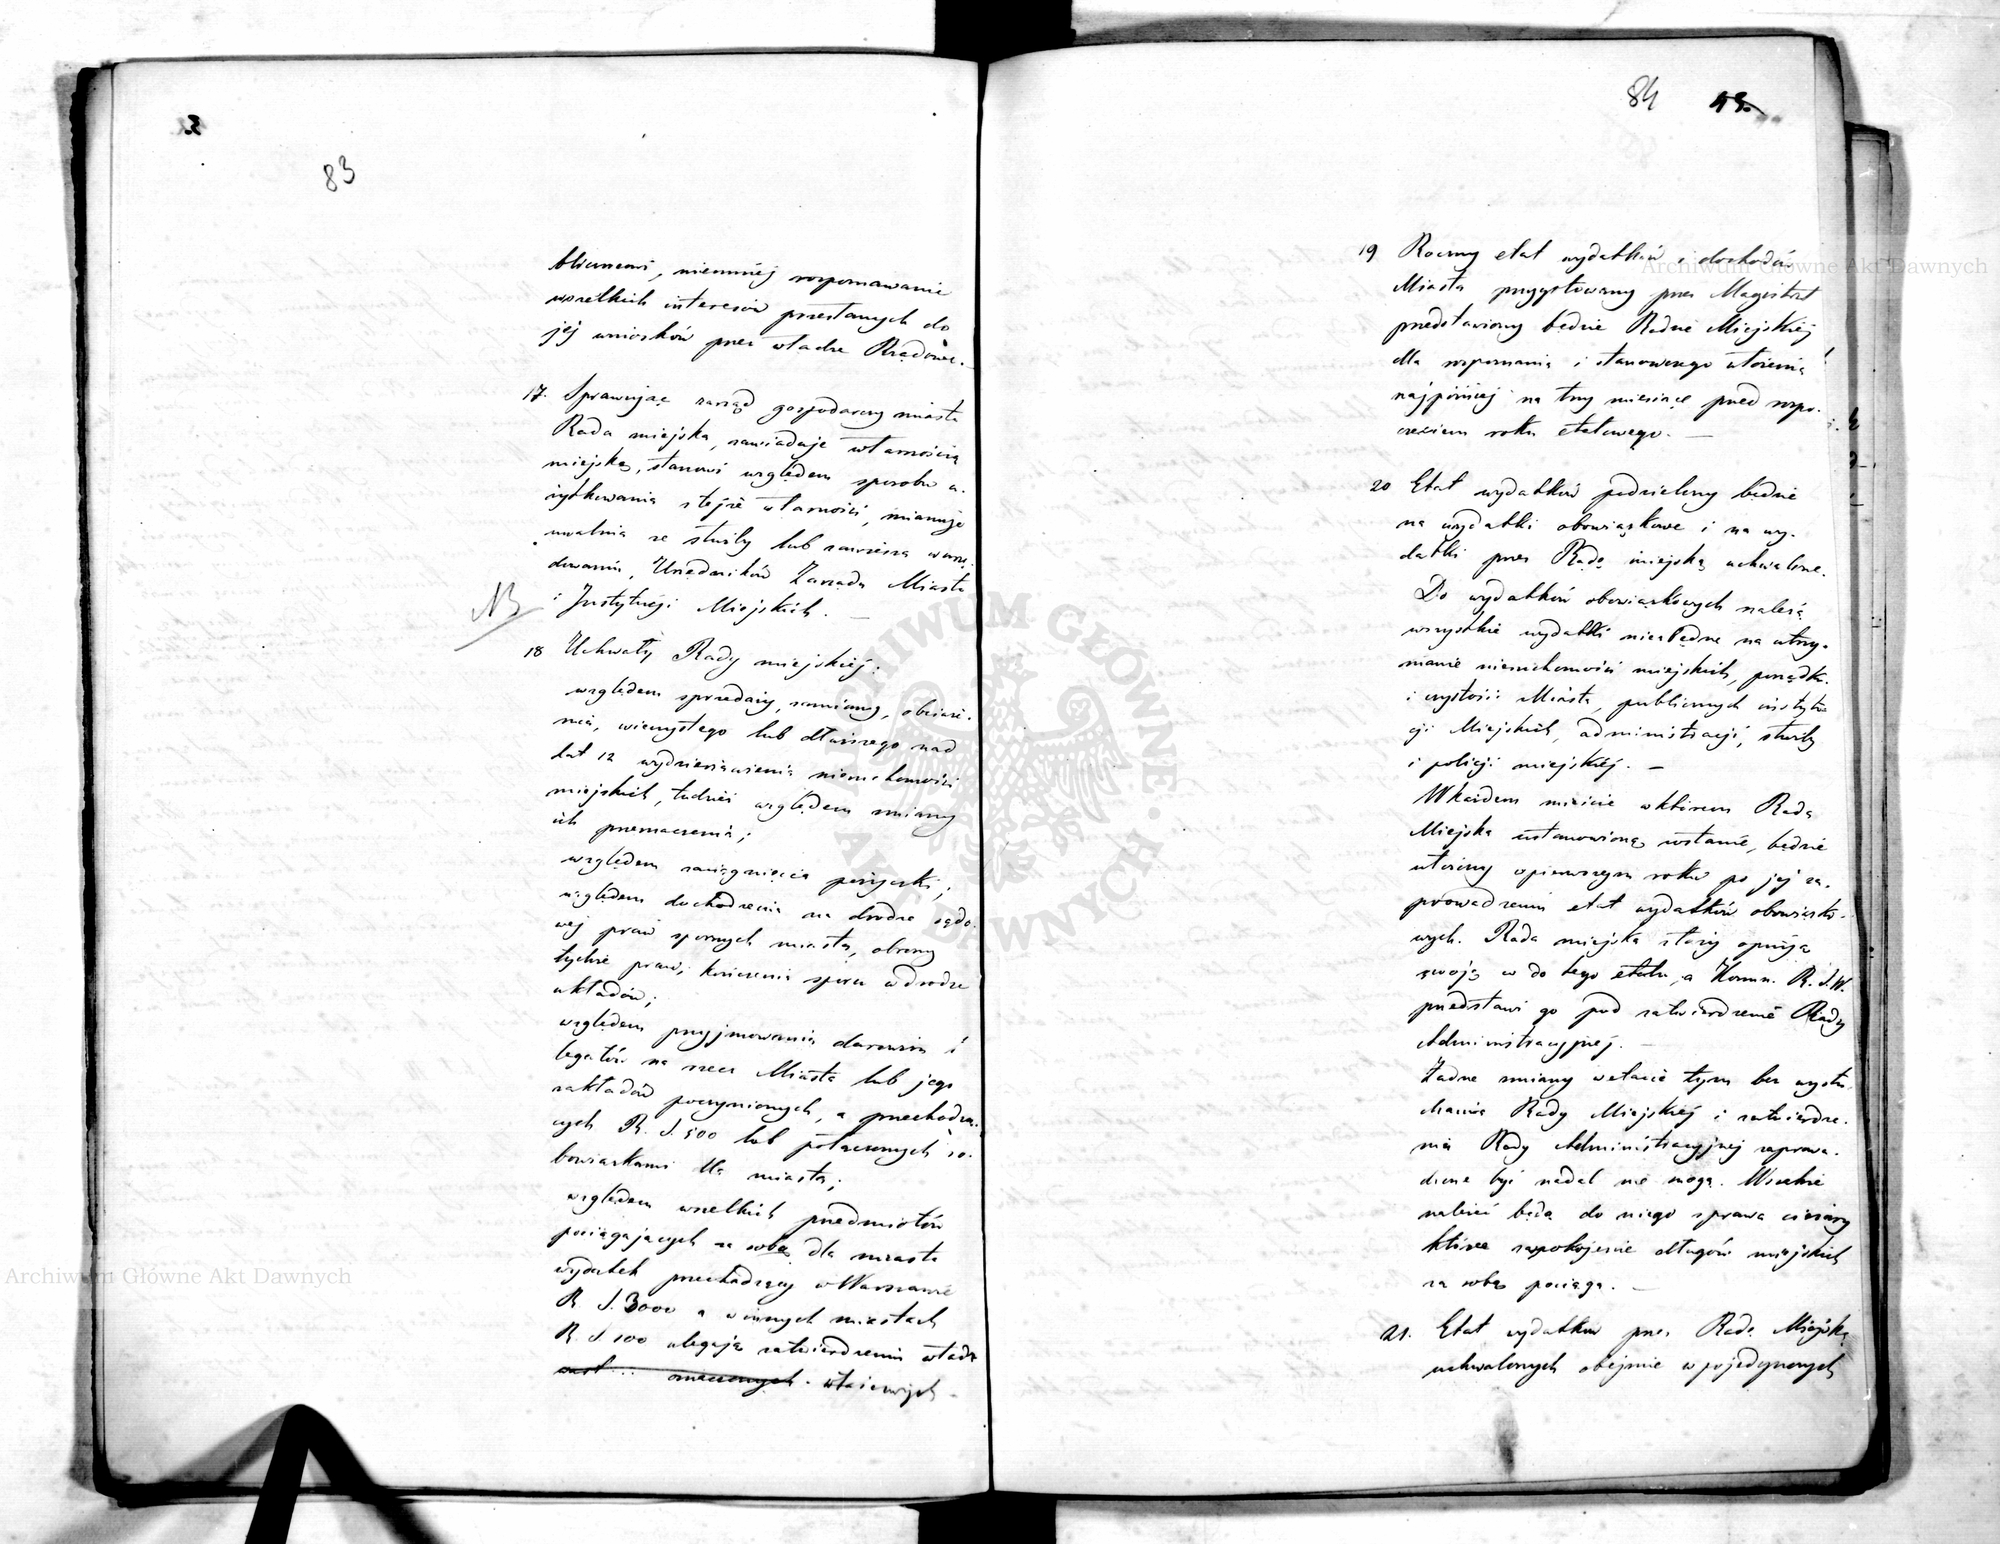 83
blicznemi, niemniéj rozpoznawanie
wszelkich interesów przesłanych do
jéj wniosków przez władze Rządowe.
17. Sprawując zarząd gospodarczy miasta
Rada miejska, zawiaduje własnością
miejską, stanowi względem sposobu u-
żytkowania z tejże własności, mianuje
uwalnia ze służby lub zawiesza w urzę-
dowaniu, Urzędników Zarządu Miasta
i Instytucji Miejskich. —
NB
18 Uchwały Rady miejskiéj:
względem sprzedaży, zamiany, obciąże-
nia, wieczystego lub dłuższego nad
lat 12 wydzierżawienia nieruchomości
miejskich, tudzież względem zmiany
ich przeznaczenia;
względem zaciągnięcia pożyczki;
względem dochodzenia na drodze sądo-
wej praw spornych miasta, obrony
tychże praw, kończenia sporu w drodze
układów;
względem przyjmowania darowizn i
legatów na rzecz Miasta lub jego
zakładów poczynionych, a przechodzą-
cych R. S. 500 lub połączonych z o-
bowiązkami dla miasta;
względem wszelkich przedmiotów
pociągających za sobą dla miasta
wydatek przechodzący w Warszawie
R. S. 3000 a w innych miastach
R. S. 100 ulegają zatwierdzeniu władz
oznaczonych. właściwych —
84
19 Roczny etat wydatków i dochodów
Miasta przygotowany przez Magistrat
przedstawiony będzie Radzie Miejskiéj
dla rozpoznania i stanowczego ułożenia
najpóźniej na trzy miesiące przed rozpo-
częciem roku etatowego. —
20 Etat wydatków podzielony będzie
na wydatki obowiązkowe i na wy-
datki przez Radę miejską uchwalone.
Do wydatków obowiązkowych należą
wszystkie wydatki niezbędne na utrzy-
manie nieruchomości miejskich, porządku
i czystości Miasta, publicznych instytu-
cji Miejskich, administracji, służby
i policji miejskiéj. —
W każdem mieście w którem Rada
Miejska ustanowioną zostanie, będzie
ułożony w pierwszym roku po jej za-
prowadzeniu etat wydatków obowiązko-
wych. Rada miejska złoży opinją
swoją co do tego etatu, a Komm. R. S. W.
przedstawi go pod zatwierdzenie Rady
Administracyjnéj. —
Żadne zmiany w etacie tym bez wysłu-
chania Rady Miejskiéj i zatwierdze-
nia Rady Administracyjnej zaprowa-
dzone być nadal nie mogą. Wszakże
należeć będą do niego z prawa ciężary
które zaspokojenie długów miejskich
za sobą pociąga. —
21. Etat wydatków przez Radę Miejską
uchwalonych obejmie w pojedynczych
Archiwum Główne Akt Dawnych
Archiwum Główne Akt Dawnych
ARCHIWUM GŁÓWNE AKT DAWNYCH